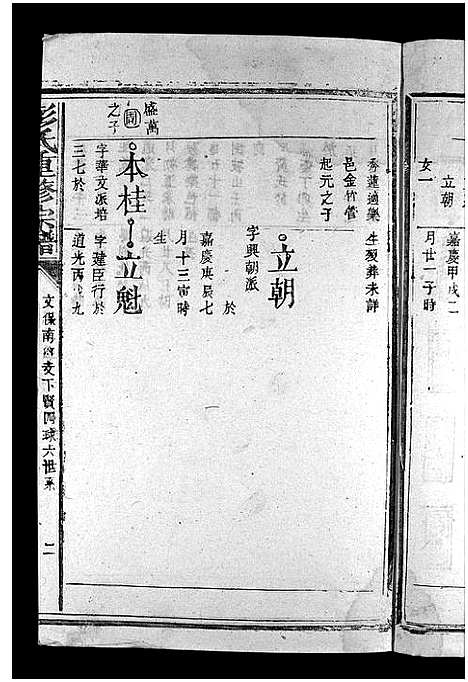 女一
立朝
嘉慶甲戌二
月廿一子時
秀蓮適樂
邑金竹管
起元之子
生歿葬未詳
立朝
字興朝派
於
嘉慶庚辰七
月十三寅時
生
盛萬
圊
之子
本桂
立魁
字華文派培
字建臣行於
三七於
道光丙戌九
彭氏重修宗譜
文保南
下賢
球六世系
二